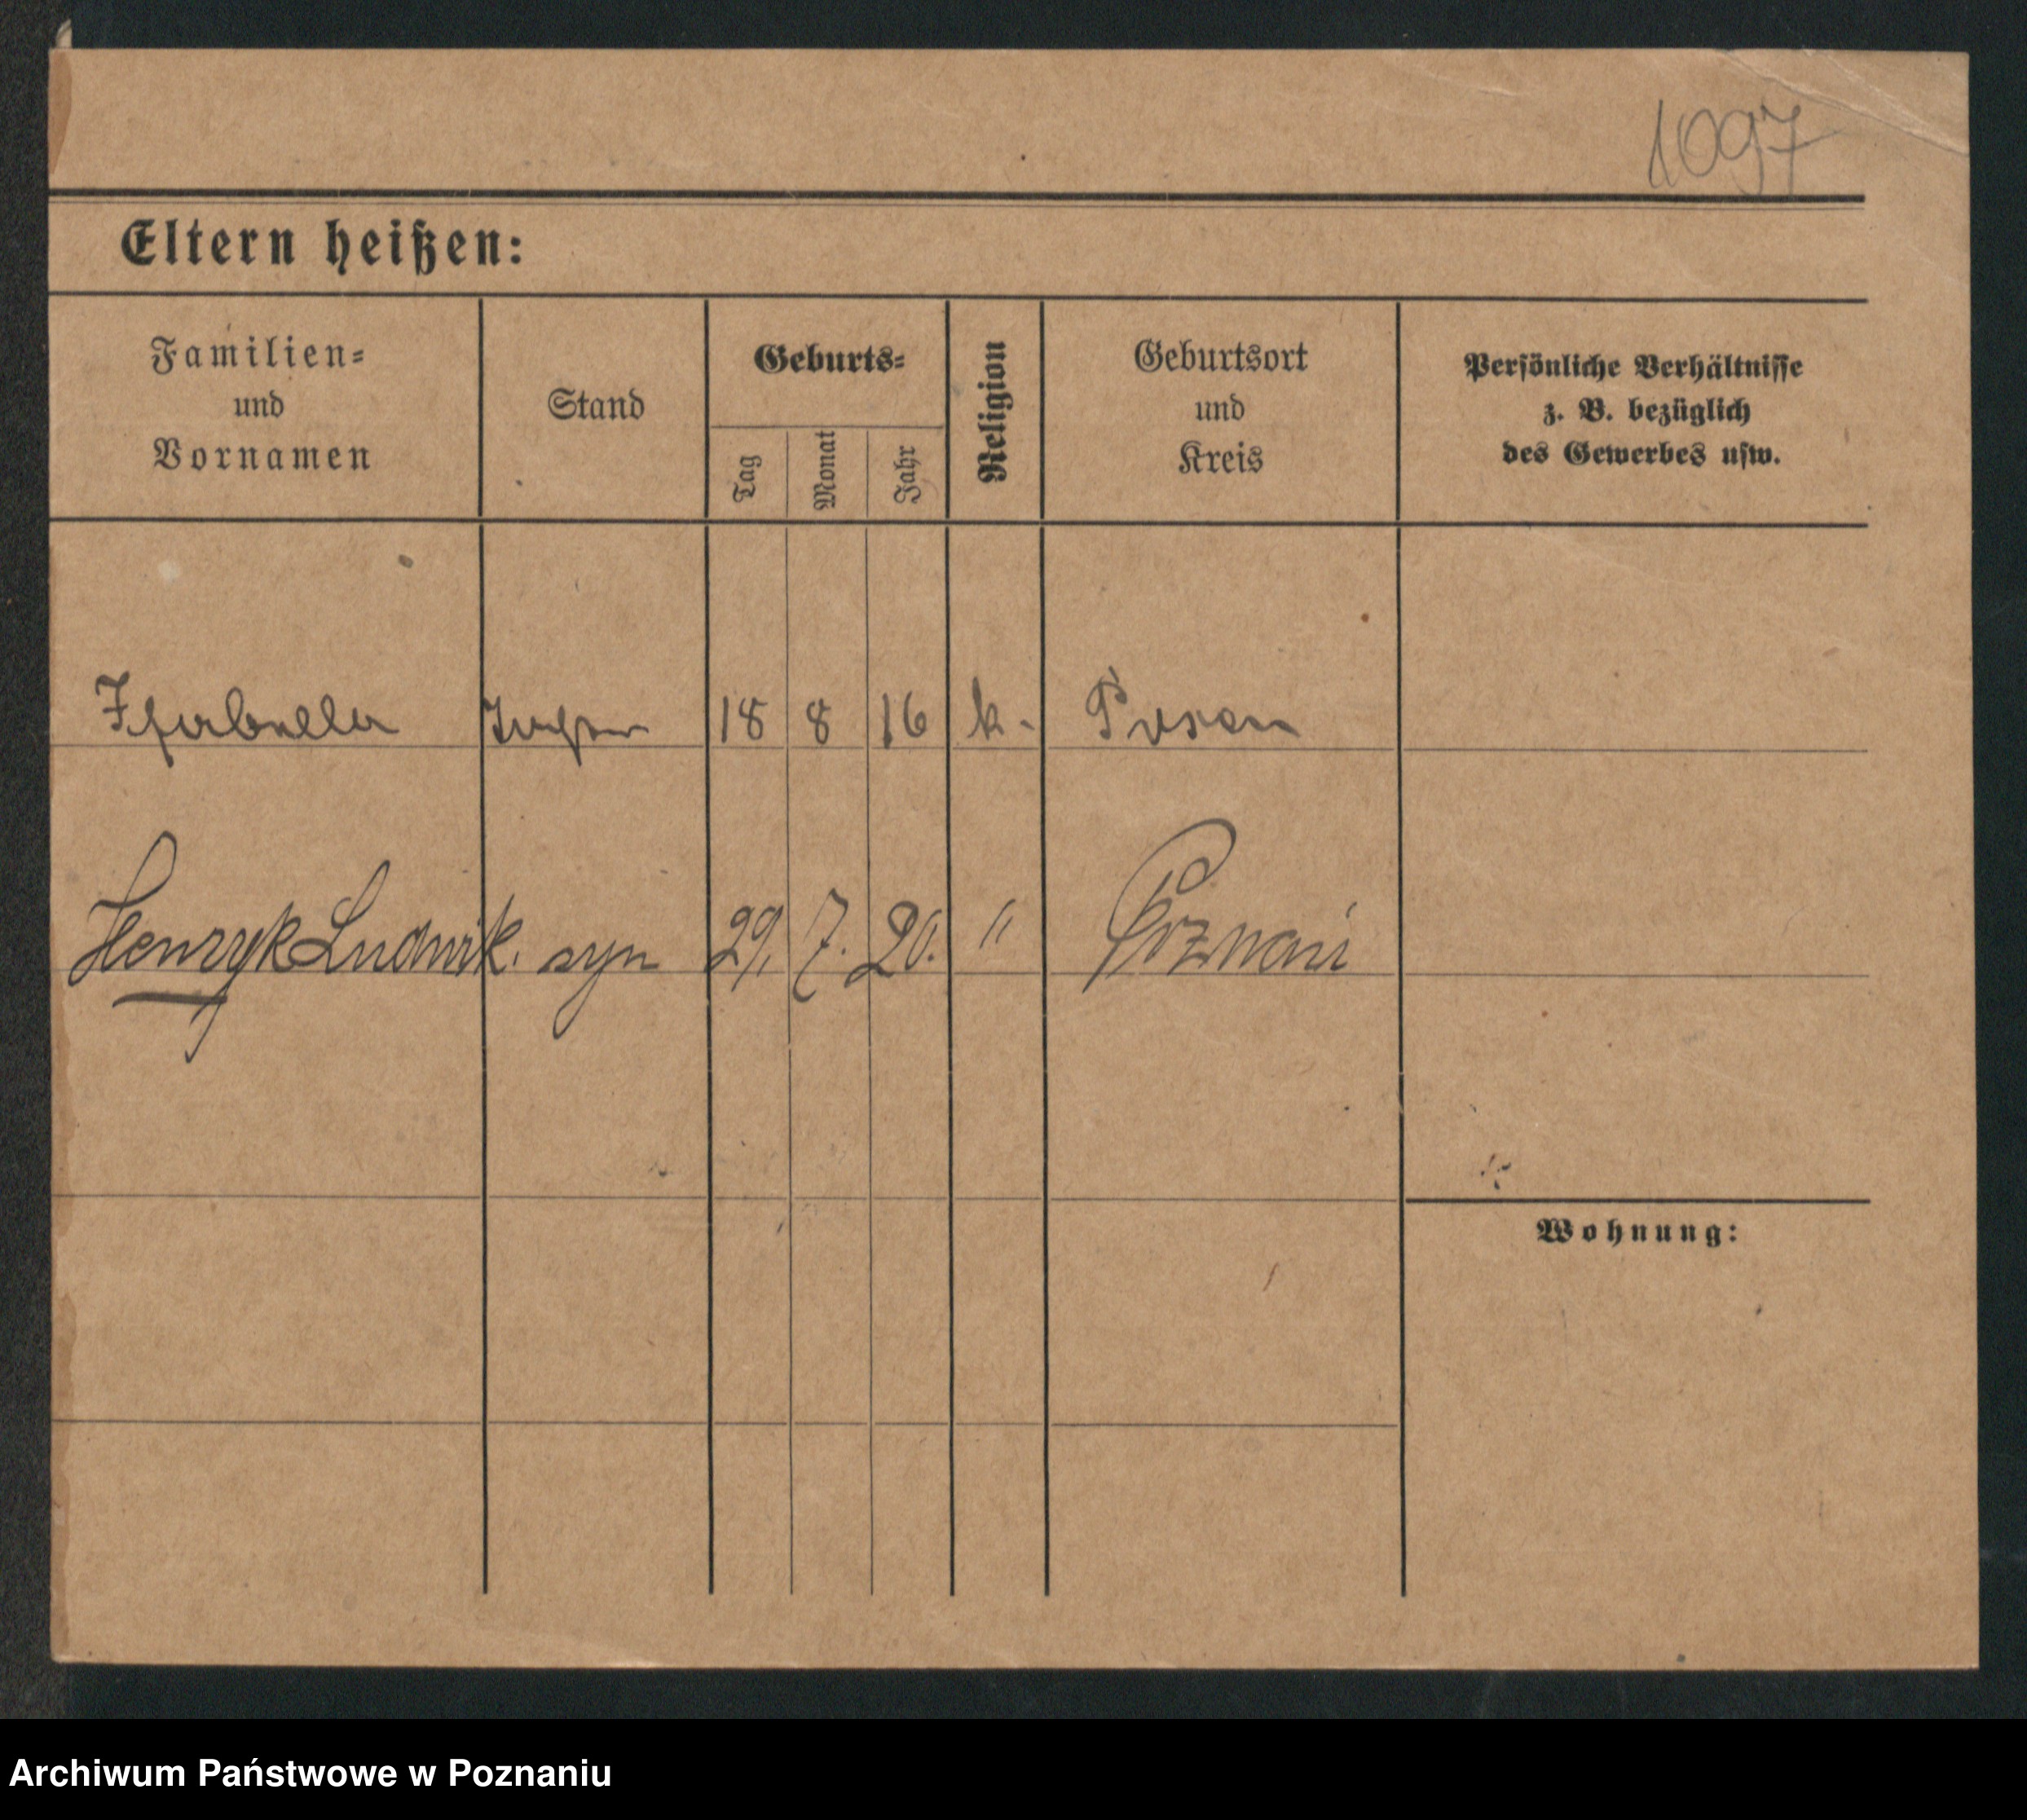 1097
Eltern heißen:
Familien=
und
Vornamen
Stand
Geburts=
Tag
Monat
Jahr
Religion
Geburtsort
und
Kreis
Persönliche Verhältnisse
z. B. bezüglich
des Gewerbes usw.
Isabella 18 8 16 k. Posen
Henryk Ludwik. syn 29. 7. 20. " Poznań
Wohnung:
Archiwum Państwowe w Poznaniu